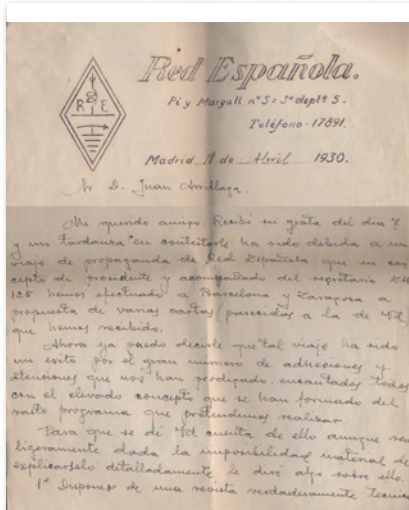 R E
Red Española.
Pi y Margall nº 5 = 3º deptº 5.
Teléfono - 17891.
Madrid 11 de Abril 1930.
Sr D. Juan Arrillaga.
Mi querido amigo. Recibí su grata del día 7
y mi tardanza en contestarle ha sido debida a un
viaje de propaganda de Red Española que en con
cepto de presidente y acompañado del secretario
125 hemos efectuado a Barcelona y Zaragoza a
propuesta de varias cartas (parecidas a la de Vd)
que hemos recibido.
Ahora ya puedo decirle que tal viaje ha sido
un exito por el gran número de adhesiones y
atenciones que nos han prodigado, encantados todos
con el elevado concepto que se han formado del
vasto programa que pretendemos realizar
Para que se dé Vd cuenta de ello aunque sea
ligeramente dada la imposibilidad material de
explicarselo detalladamente le diré algo sobre ello.
1º Disponer de una revista verdaderamente tecnica